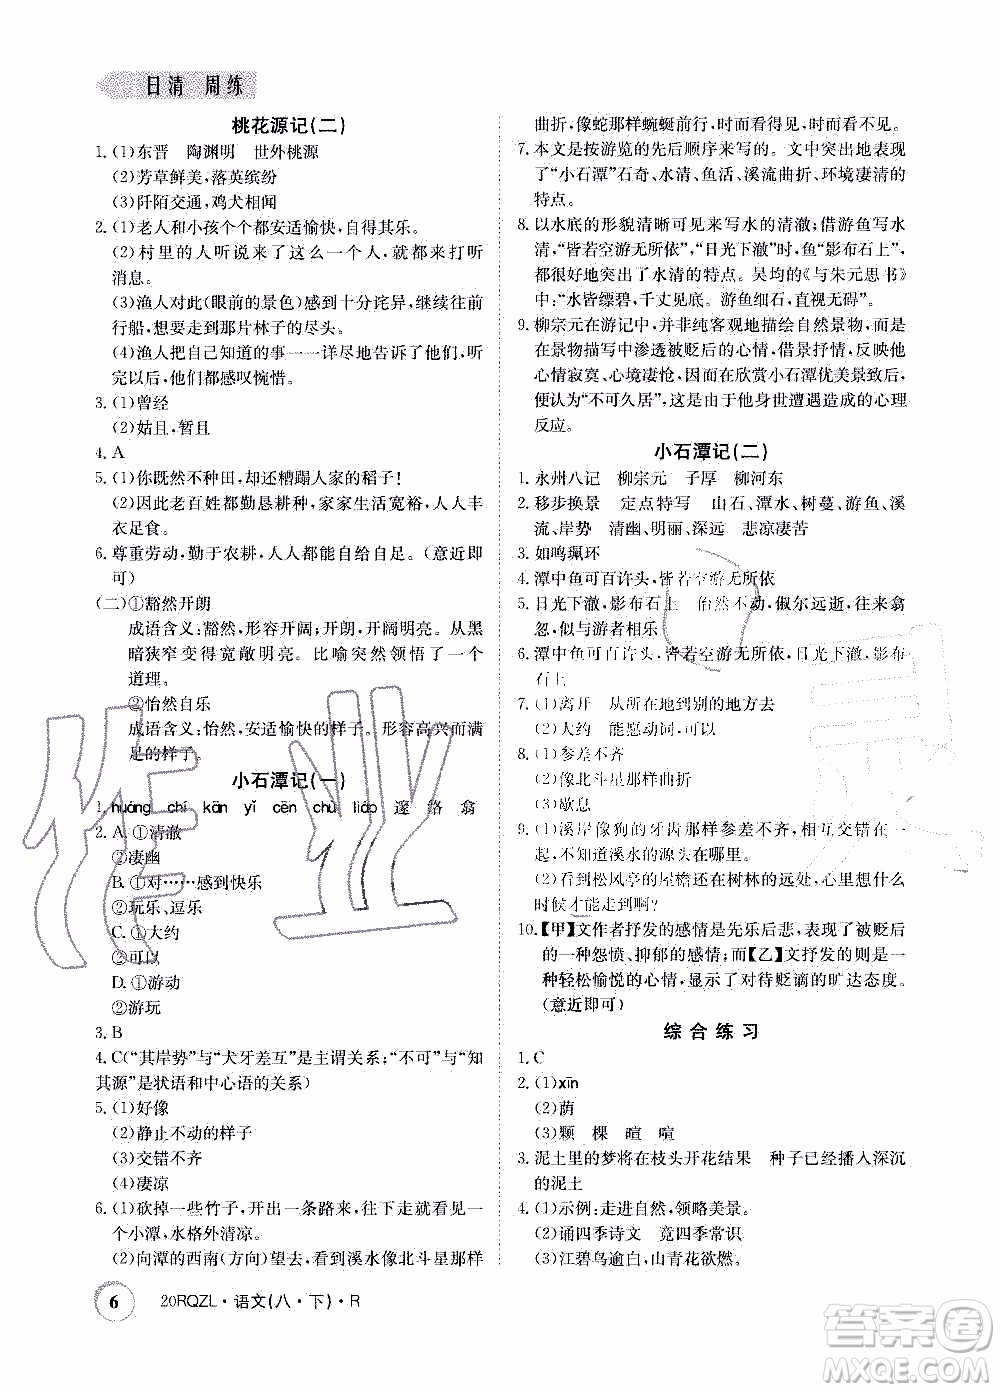 日清 周练
桃花源记(二)
1. (1)东晋 陶渊明 世外桃源
(2)芳草鲜美,落英缤纷
(3)阡陌交通,鸡犬相闻
2. (1)老人和小孩个个都安适愉快,自得其乐。
(2)村里的人听说来了这么一个人,都来打听
消息。
(3)渔人对(眼前的景色)感到十分诧异,继续往前
行船,想要走到那片林子的尽头。
(4)渔人把自己知道的事一一详尽地告诉了他们,听
完以后,他们都感叹惋惜。
3. (1)曾经
(2)姑且,暂且
4. A
5. (1)你既然不种田,却还糟蹋人家的稻子!
(2)因此老百姓都勤恳耕种,家家生活宽裕,人人丰
衣足食。
6. 尊重劳动,勤于农耕,人人都能自给自足。(意近即
可)
(二)①豁然开朗
成语含义:豁然,形容开阔;开朗,明亮。从黑
暗狭窄变得宽敞明亮。比喻突然领悟了一个
道理。
②怡然自乐
成语含义:怡然,安适愉快的样子。形容高兴而满
足的样子。
小石潭记(一)
1. huáng chí kān yǐ cēn chù liáo 邃 佁 翕
2. A. ①清澈
②凄幽
B. ①对……感到快乐
②玩乐、逗乐
C. ①大约
②可以
D. ①游动
②游玩
3. B
4. C(“其岸势”与“犬牙差互”是主谓关系;“不可”与“知
其源”是状语和中心语的关系)
5. (1)好像
(2)静止不动的样子
(3)交错不齐
(4)凄凉
6. (1)砍掉一些竹子,开出一条路来,往下走看见一个
小潭,水格外清凉。
(2)向潭的西南(方向)望去,看到溪水像北斗星那样
曲折,像蛇那样蜿蜒前行,时而看得见,时而看不见。
7. 本文是按游览的先后顺序来写的。文中突出地表现
了“小石潭”石奇、水清、鱼活、溪流曲折、环境凄清的
特点。
8. 以水底的形貌清晰可见来写水的清澈;借游鱼写水
清,“皆若空游无所依”,“日光下澈”时,鱼“影布石上”,
都很好地突出了水清的特点。吴均的《与朱元思书》
中:“水皆缥碧,千丈见底。游鱼细石,直视无碍”。
9. 柳宗元在游记中,并非纯客观地描绘自然景物,而是
在景物描写中渗透被贬后的心情,借景抒情,反映他
心情寂寞、心境凄怆。所以在欣赏小石潭优美景致后,
便认为“不可久居”,这是由他身世遭遇造成的心理
反应。
小石潭记(二)
1. 永州八记 柳宗元 子厚 柳河东
2. 移步换景 定点特写 山石、潭水、树蔓、游鱼、溪
流、岸势 清幽、明丽、深远 悲凉凄苦
3. 如鸣珮环
4. 潭中鱼可百许头,皆若空游无所依
5. 日光下澈,影布石上 佁然不动,俶尔远逝,往来翕
忽,似与游者相乐
6. 潭中鱼可百许头,皆若空游无所依,日光下澈,影布
石上
7. (1)离开 从所在地到别的地方去
(2)大约 能愿动词,可以
8. (1)参差不齐
(2)像北斗星那样曲折
(3)歇息
9. (1)溪岸的形状像狗的牙齿那样参差不齐,相互交错在一
起,不知道溪水的源头在哪里。
(2)看到松风亭的屋檐在树林的远处,心里想什么
时候才能走到啊?
10. 【甲】文作者抒发的感情是先乐后悲,表现了被贬后
的一种怨愤、抑郁的感情;而【乙】文抒发的则是一
种轻松愉悦的心情,显示了对待贬谪的旷达态度。
(意近即可)
综合练习
1. C
2. (1)xīn
(2)荫
(3)颗 棵 暄 喧
3. 泥土里的梦将在枝头开花结果 种子已经播入深深
的泥土
4. (1)示例:走进自然,领略美景。
(2)诵四季诗文 竞四季常识
(3)江碧鸟逾白,山青花欲燃。
6 20RQZL·语文(八·下)·R
作业
答案圈
MXQE.COM